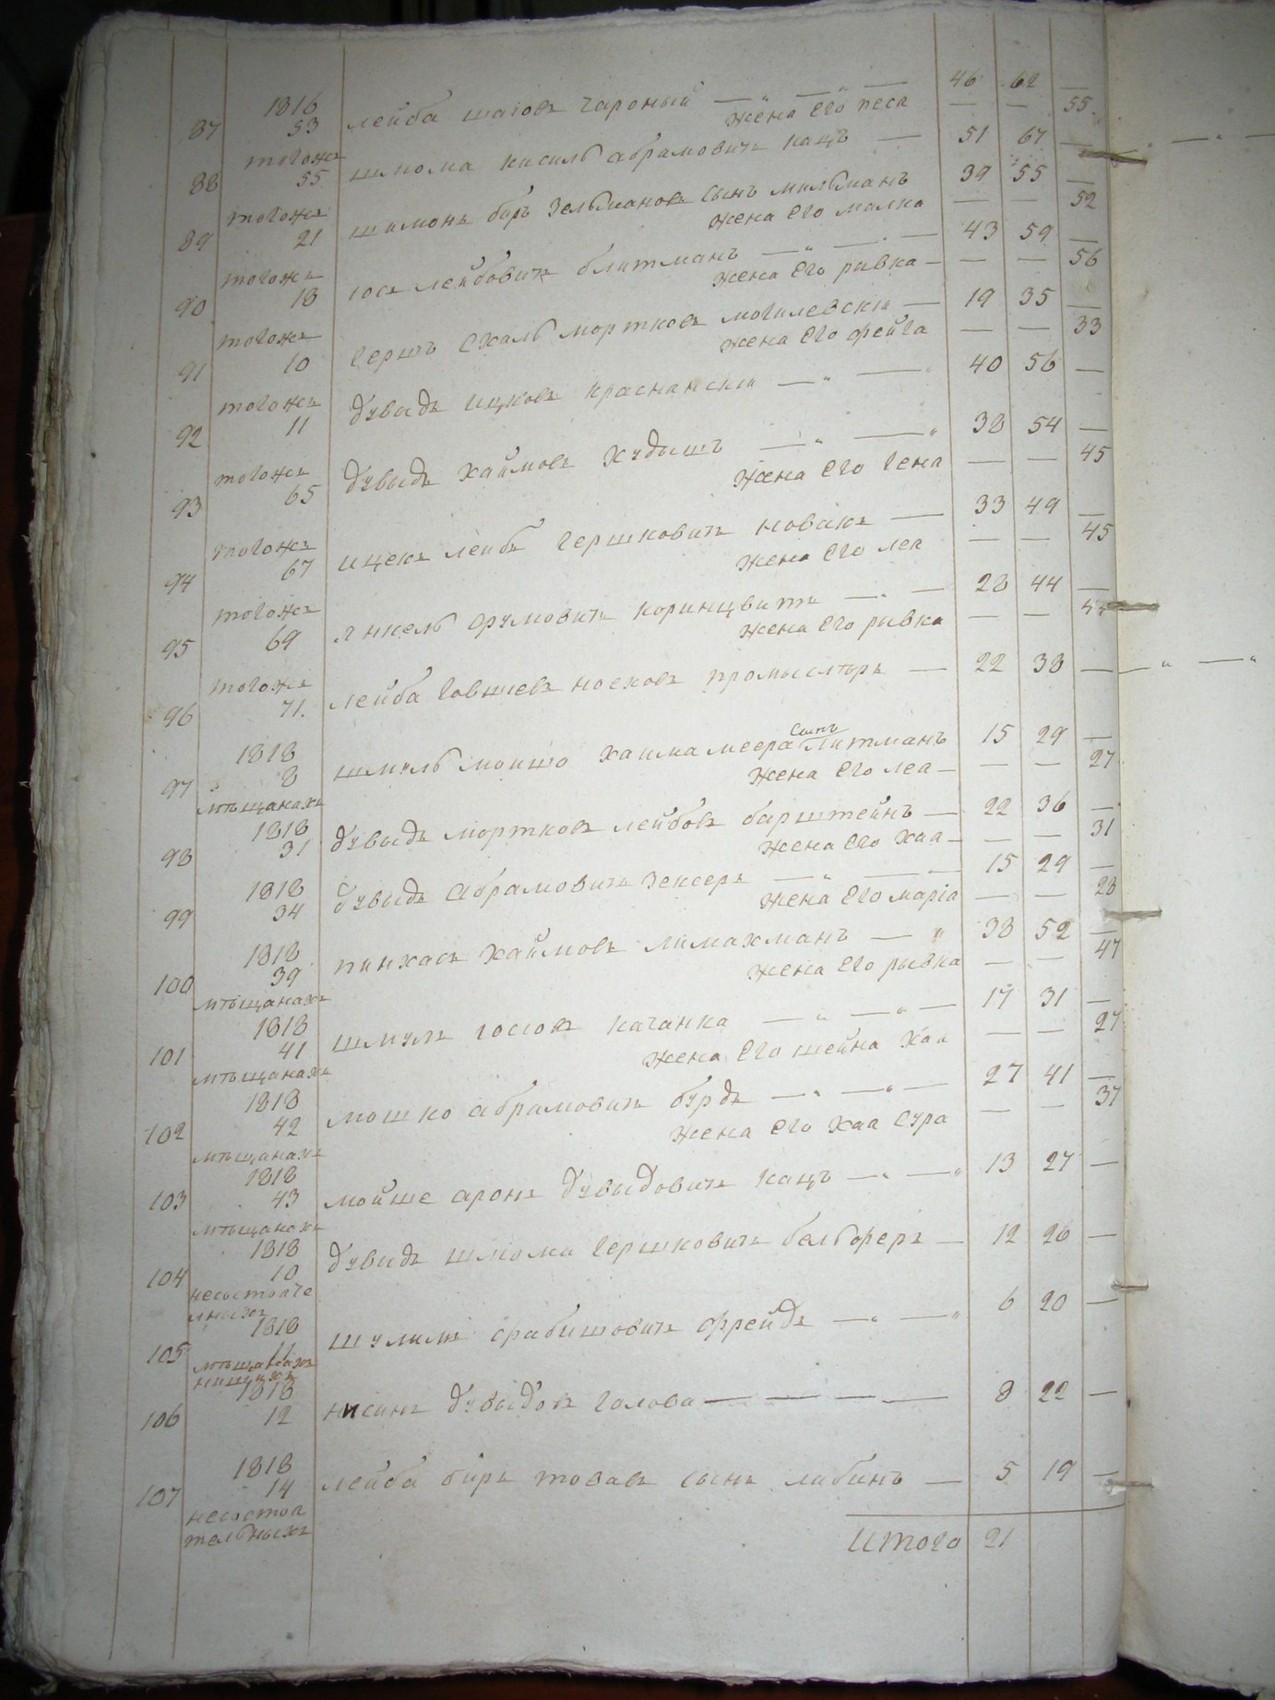 1816 46 62 —
87 53 лейба шаговъ гароный — „ — „ —
жена Его песа — — 55
тогожъ
88 55 шлиома кисиль абрамовичъ кацъ — 51 67 —
тогожъ
89 21 шимонъ беръ Зельмановъ сынъ мильманъ 39 55 —
жена Его малка — — 52
тогожъ
90 18 иосъ лейбовичъ блитманъ — „ — „ — 43 59 —
жена Его ривка — — — 56
тогожъ
91 10 Гершъ Схаль мортковъ могилевски — 19 35 —
жена Его фейга — — 33
тогожъ
92 11 дувыдъ ицковъ краснянски — „ — „ 40 56 —
тогожъ
93 65 дувыдъ хаимовъ худышъ — „ — „ 38 54 —
жена Его Гена — — 45
тогожъ
94 67 ицекъ лейбъ Гершковичъ новакъ — 33 49 —
жена Его леа — — 45
тогожъ
95 69 янкель фумовичъ коринцвитъ — „ — 28 44 —
жена Его ривка — —
тогожъ
96 71. лейба Говшиевъ носковъ — 22 38 —
1818
97 8 шмуль моишо хаима меера Сынъ Литманъ 15 29 —
мѣщанахъ жена Его леа — — — 27
1818
98 31 дувыдъ мортковъ лейбовъ барштейнъ — 22 36 —
жена Его хаа — — — 31
1818
99 34 дувыдъ абрамовичъ Зексеръ — „ — „ — 15 29 —
жена Его маріа — — 28
1818
100 39 пинхасъ хаимовъ лимахманъ — „ 38 52 —
мѣщанахъ жена Его рывка — — 47
1818
101 41 шмуль госиовъ качанка — „ — „ — 17 31 —
мѣщанахъ жена Его шейна хаа — — 27
1818
102 42 мошко абрамовичъ бурдъ — „ — „ — 27 41 —
мѣщанахъ жена Его хаа Сура — — 37
1818
103 43 мойше аронъ дувыдовичъ кацъ — „ — „ 13 27 —
мѣщанахъ
1818
104 10 дувидъ шлиома Гершковичъ бельферъ — 12 26 —
несостояте
лныхъ
1818
105 11 шулимъ срабишовичъ фрейдъ — „ — „ 6 20 —
мѣщанахъ
нищихъ
1818
106 12 нисинъ дувыдовъ Голова — — — — 8 22 —
1818
107 14 лейба беръ товавъ сынъ либинъ — 5 19 —
несостоя
тельныхъ
Итого 21